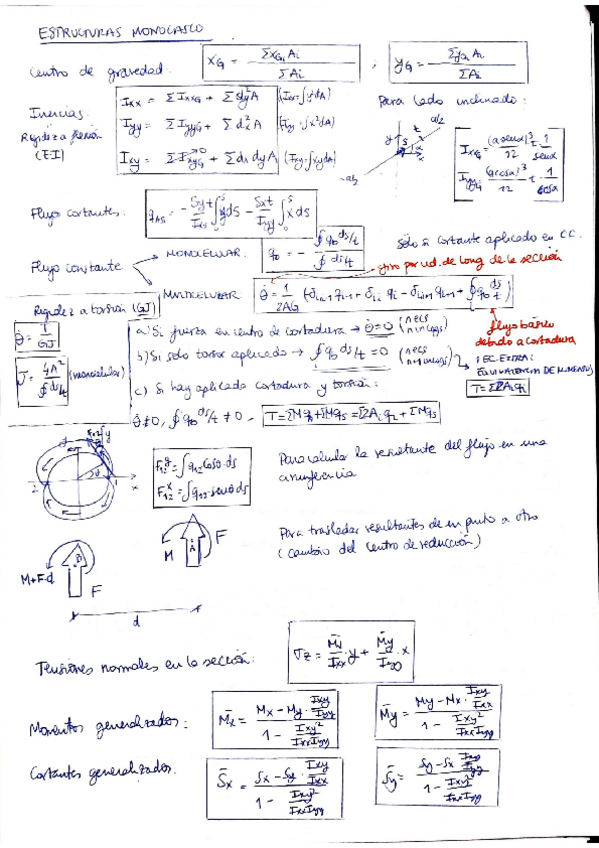 ESTRUCTURAS MONOCASCO
Centro de gravedad: x_G = Σx_Gi Ai / ΣAi ; y_G = Σy_Gi Ai / ΣAi
Inercias: Ixx = ΣIxxG + Σdy²A (Ixx=∫y²dA) Para lado inclinado:
Rigidez a flexión Iyy = ΣIyyG + Σdx²A (Iyy=∫x²dA)
(EI) Ixy = ΣIxyG→0 + Σdx dy A (Ixy=∫xydA)
a/2 y s t x α -a/2
IxxG = (a senα)³/12 t · 1/senα
IyyG = (a cosα)³/12 t · 1/cosα
Flujo cortantes: qAS = - Sy t/Ixx ∫₀ˢ y ds - Sx t/Iyy ∫₀ˢ x ds
Flujo constante MONOCELULAR: q0 = - ∮qb ds/t / ∮ds/t Sólo si cortante aplicado en C.C.
giro por ud. de long de la sección
MULTICELULAR: θ̇ = 1/2AG (-δi,i-1 qi-1 + δii qi - δi,i+1 qi+1 + ∮qb ds/t)
flujo básico debido a cortadura
Rigidez a torsión (GJ)
θ̇ = T/GJ
J = 4A²/∮ds/t (monocelular)
a) Si fuerza en centro de cortadura → θ̇=0 (n ecs n incogs)
b) Si solo torsor aplicado → ∮qb ds/t = 0 (n ecs n+1 incogs)
1 EC. EXTRA:
EQUIVALENCIA DE MOMENTOS
T = Σ2Ai qi
c) Si hay aplicado cortadura y torsión:
θ̇≠0, ∮qb ds/t ≠0 - T = ΣMqi + ΣMqs = Σ2Ai qi + ΣMqs
F12^y = ∫q12 cosθ · ds
F12^x = ∫q12 · senθ ds
2 1 x y
Para calcular la resultante del flujo en una
circunferencia
M A F
Para trasladar resultantes de un punto a otro
(cambio del centro de reducción)
M+F·d B F
d
Tensiones normales en la sección: σz = M̄x/Ixx · y + M̄y/Iyy · x
Momentos generalizados: M̄x = (Mx - My · Ixy/Iyy) / (1 - Ixy²/IxxIyy) M̄y = (My - Mx · Ixy/Ixx) / (1 - Ixy²/IxxIyy)
Cortantes generalizados. S̄x = (Sx - Sy · Ixy/Ixx) / (1 - Ixy²/IxxIyy) S̄y = (Sy - Sx Ixy/Iyy) / (1 - Ixy²/IxxIyy)